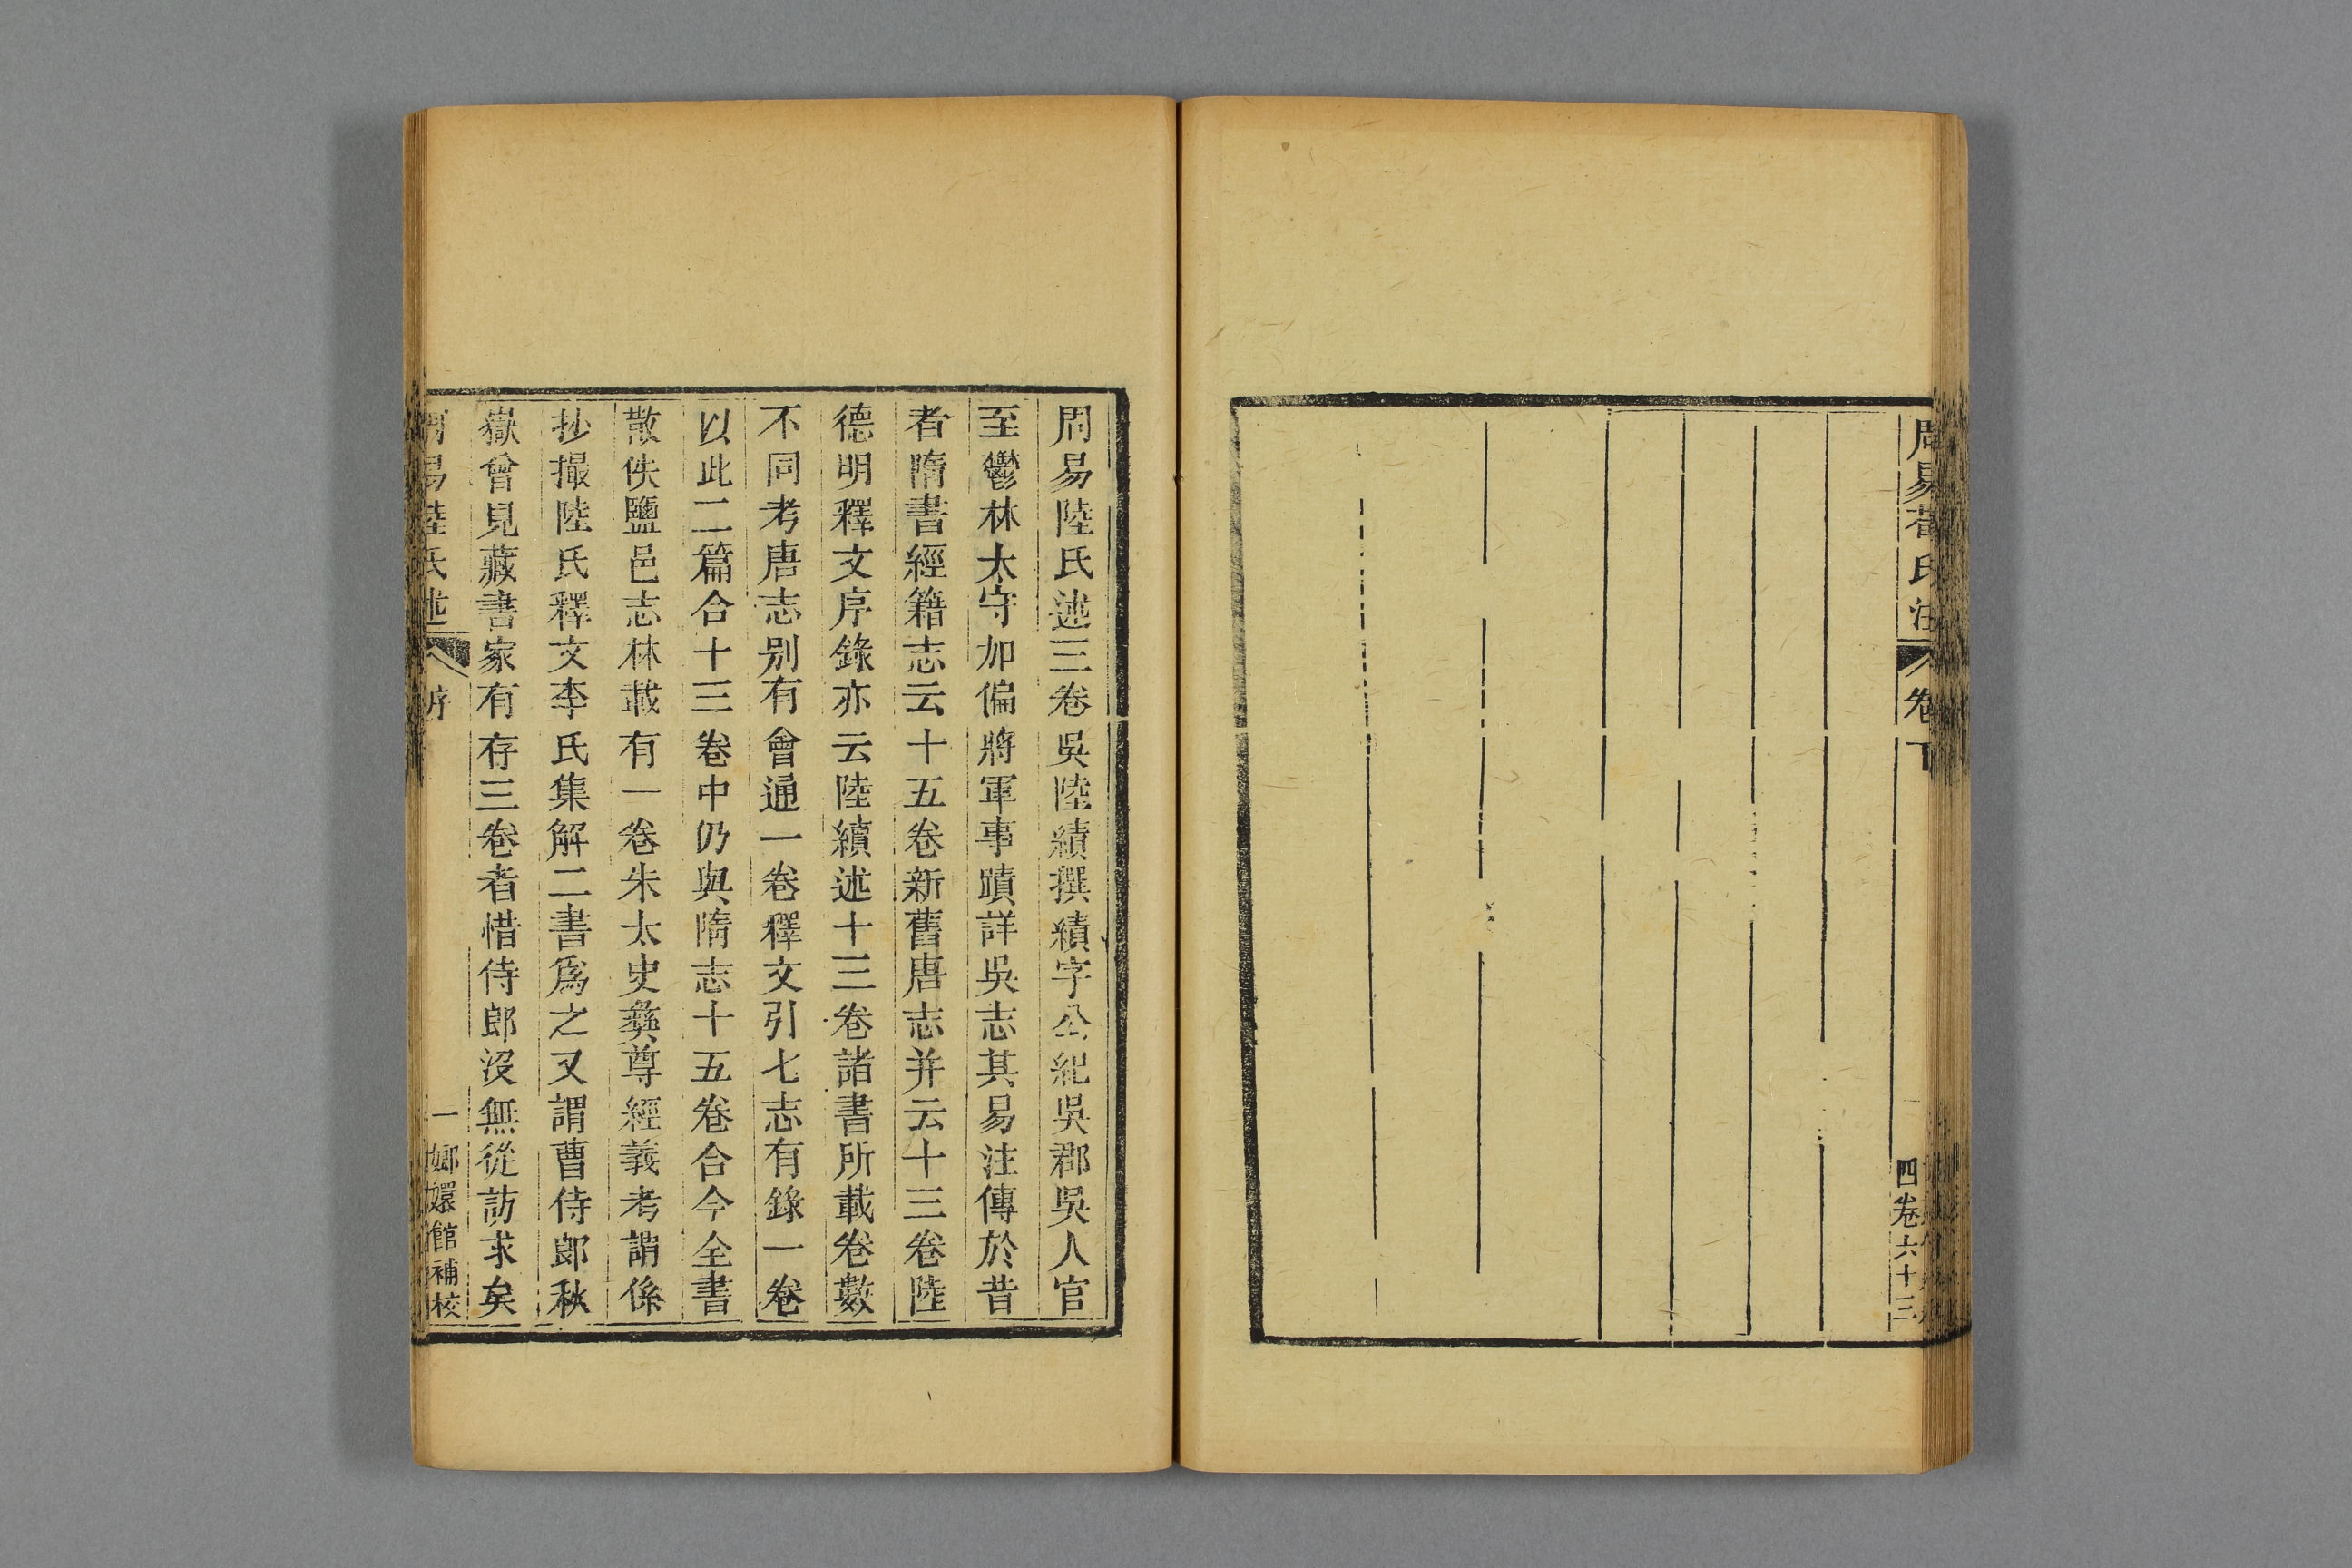 周易荀氏注
卷下
四
卷六十三
周易陸氏述三卷吳陸績撰績字公紀吳郡吳人官
至鬱林太守加偏將軍事蹟詳吳志其易注傳於昔
者隋書經籍志云十五卷新舊唐志并云十三卷陸
德明釋文序錄亦云陸績述十三卷諸書所載卷數
不同考唐志别有會通一卷釋文引七志有錄一卷
以此二篇合十三卷中仍與隋志十五卷合今全書
散佚鹽邑志林載有一卷朱太史彝尊經義考謂係
抄撮陸氏釋文李氏集解二書爲之又謂曹侍郎秋
嶽曾見藏書家有存三卷者惜侍郎沒無從訪求矣
周易陸氏述
序
一
嫏嬛館補校